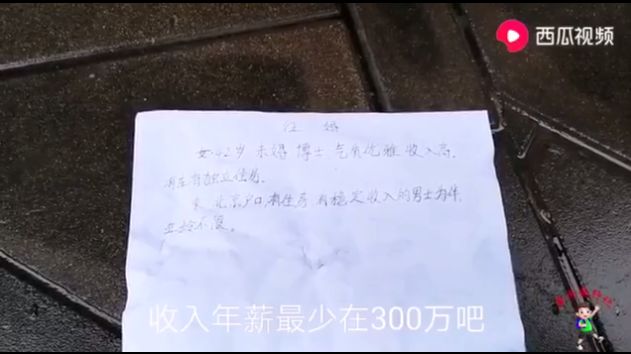 西瓜视频
征 婚
女42岁 未婚 博士 气质优雅 收入高.
有住房独立
求 北京户口,有住房 有稳定收入的男士为伴.
年龄不限。
收入年薪最少在300万吧